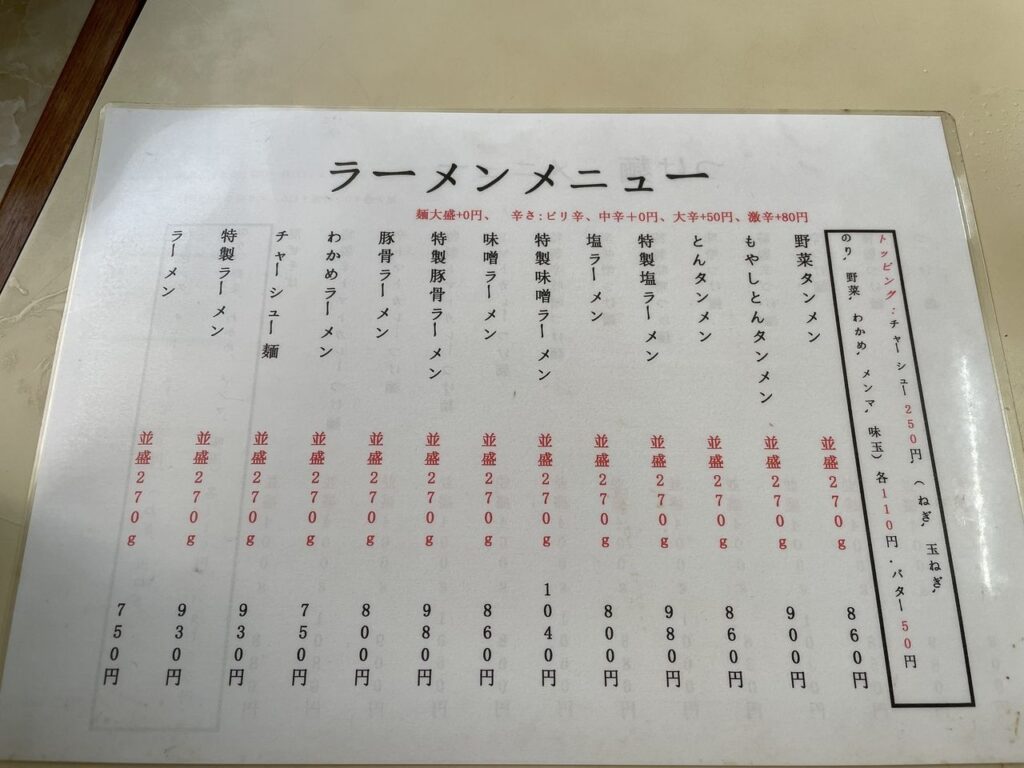 ラーメンメニュー
麺大盛+0円、 辛さ:ピリ辛、中辛＋0円、大辛+50円、激辛+80円
トッピング：チャーシュー250円，（ねぎ，玉ねぎ，
のり，野菜，わかめ，メンマ，味玉）各110円．バター50円
野菜タンメン 並盛270g 860円
もやしとんタンメン 並盛270g 900円
とんタンメン 並盛270g 860円
特製塩ラーメン 並盛270g 980円
塩ラーメン 並盛270g 800円
特製味噌ラーメン 並盛270g 1040円
味噌ラーメン 並盛270g 860円
特製豚骨ラーメン 並盛270g 980円
豚骨ラーメン 並盛270g 800円
わかめラーメン 並盛270g 750円
チャーシュー麺 並盛270g 930円
特製ラーメン 並盛270g 930円
ラーメン 並盛270g 750円